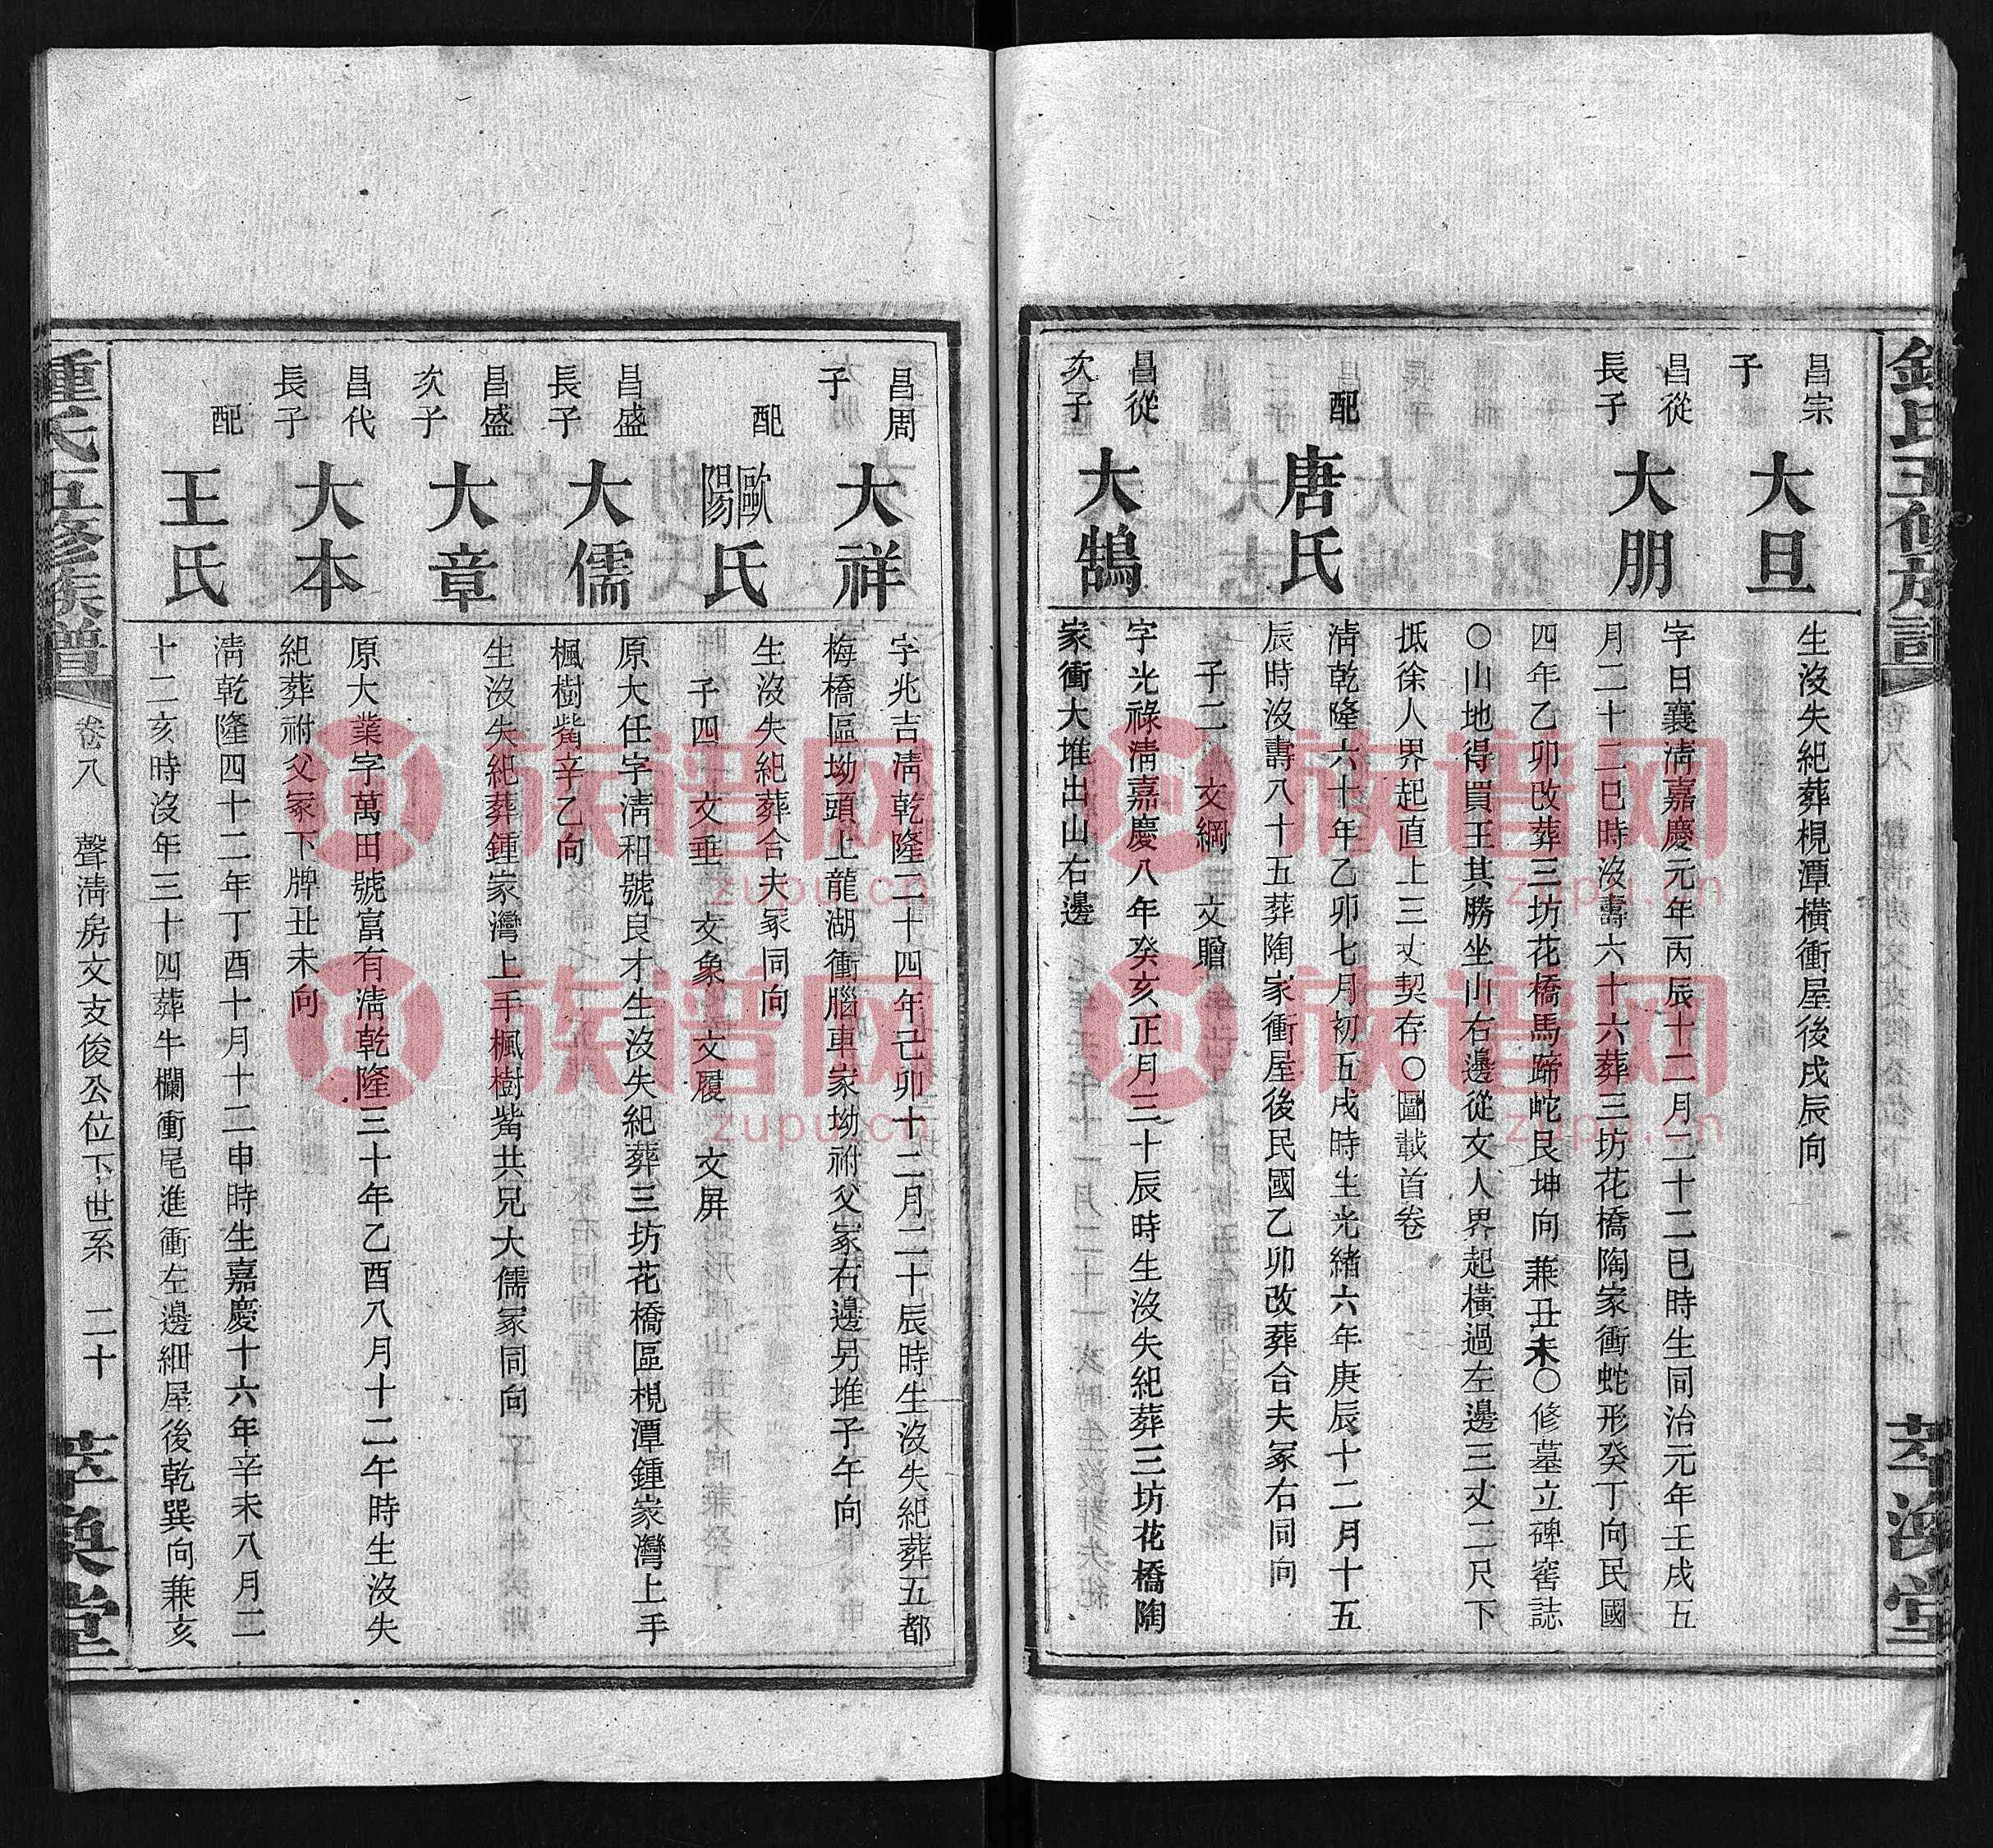 昌宗
子
大旦
生沒失紀葬梘潭橫衝屋後戌辰向
昌從
長子
大朋
字日襄淸嘉慶元年丙辰十二月二十二巳時生同治元年壬戌五
月二十二巳時沒壽六十六葬三坊花橋陶家衝蛇形癸丁向民國
四年乙卯改葬三坊花橋馬蹄岮艮坤向兼丑未○修墓立碑窖誌
○山地得買王其勝坐山右邊從文人界起橫過左邊三丈二尺下
抵徐人界起直上三丈契存○圖載首卷
配
唐氏
淸乾隆六十年乙卯七月初五戌時生光緒六年庚辰十二月十五
辰時沒壽八十五葬陶家衝屋後民國乙卯改葬合夫冢右同向
子二 文綱 文贈
昌從
次子
大鵠
字光祿淸嘉慶八年癸亥正月三十辰時生沒失紀葬三坊花橋陶
家衝大堆出山右邊
昌周
子
大祥
字兆吉淸乾隆二十四年己卯十二月二十辰時生沒失紀葬五都
梅橋區坳頭上龍湖衝腦車家坳祔父冢右邊另堆子午向
配
歐陽氏
生沒失紀葬合夫冢同向
子四 文垂 文象 文履 文屏
昌盛
長子
大儒
原大任字淸和號良才生沒失紀葬三坊花橋區梘潭鍾家灣上手
楓樹觜辛乙向
昌盛
次子
大章
生沒失紀葬鍾家灣上手楓樹觜共兄大儒冢同向
昌代
長子
大本
原大業字萬田號富有淸乾隆三十年乙酉八月十二午時生沒失
紀葬祔父冢下牌丑未向
配
王氏
淸乾隆四十二年丁酉十月十二申時生嘉慶十六年辛未八月二
十二亥時沒年三十四葬牛欄衝尾進衝左邊細屋後乾巽向兼亥
鍾氏五修族譜
卷八 聲淸房文支俊公位下世系 二十
萃渙堂
族谱网
zupu.cn
族谱网
zupu.cn
族谱网
zupu.cn
族谱网
zupu.cn